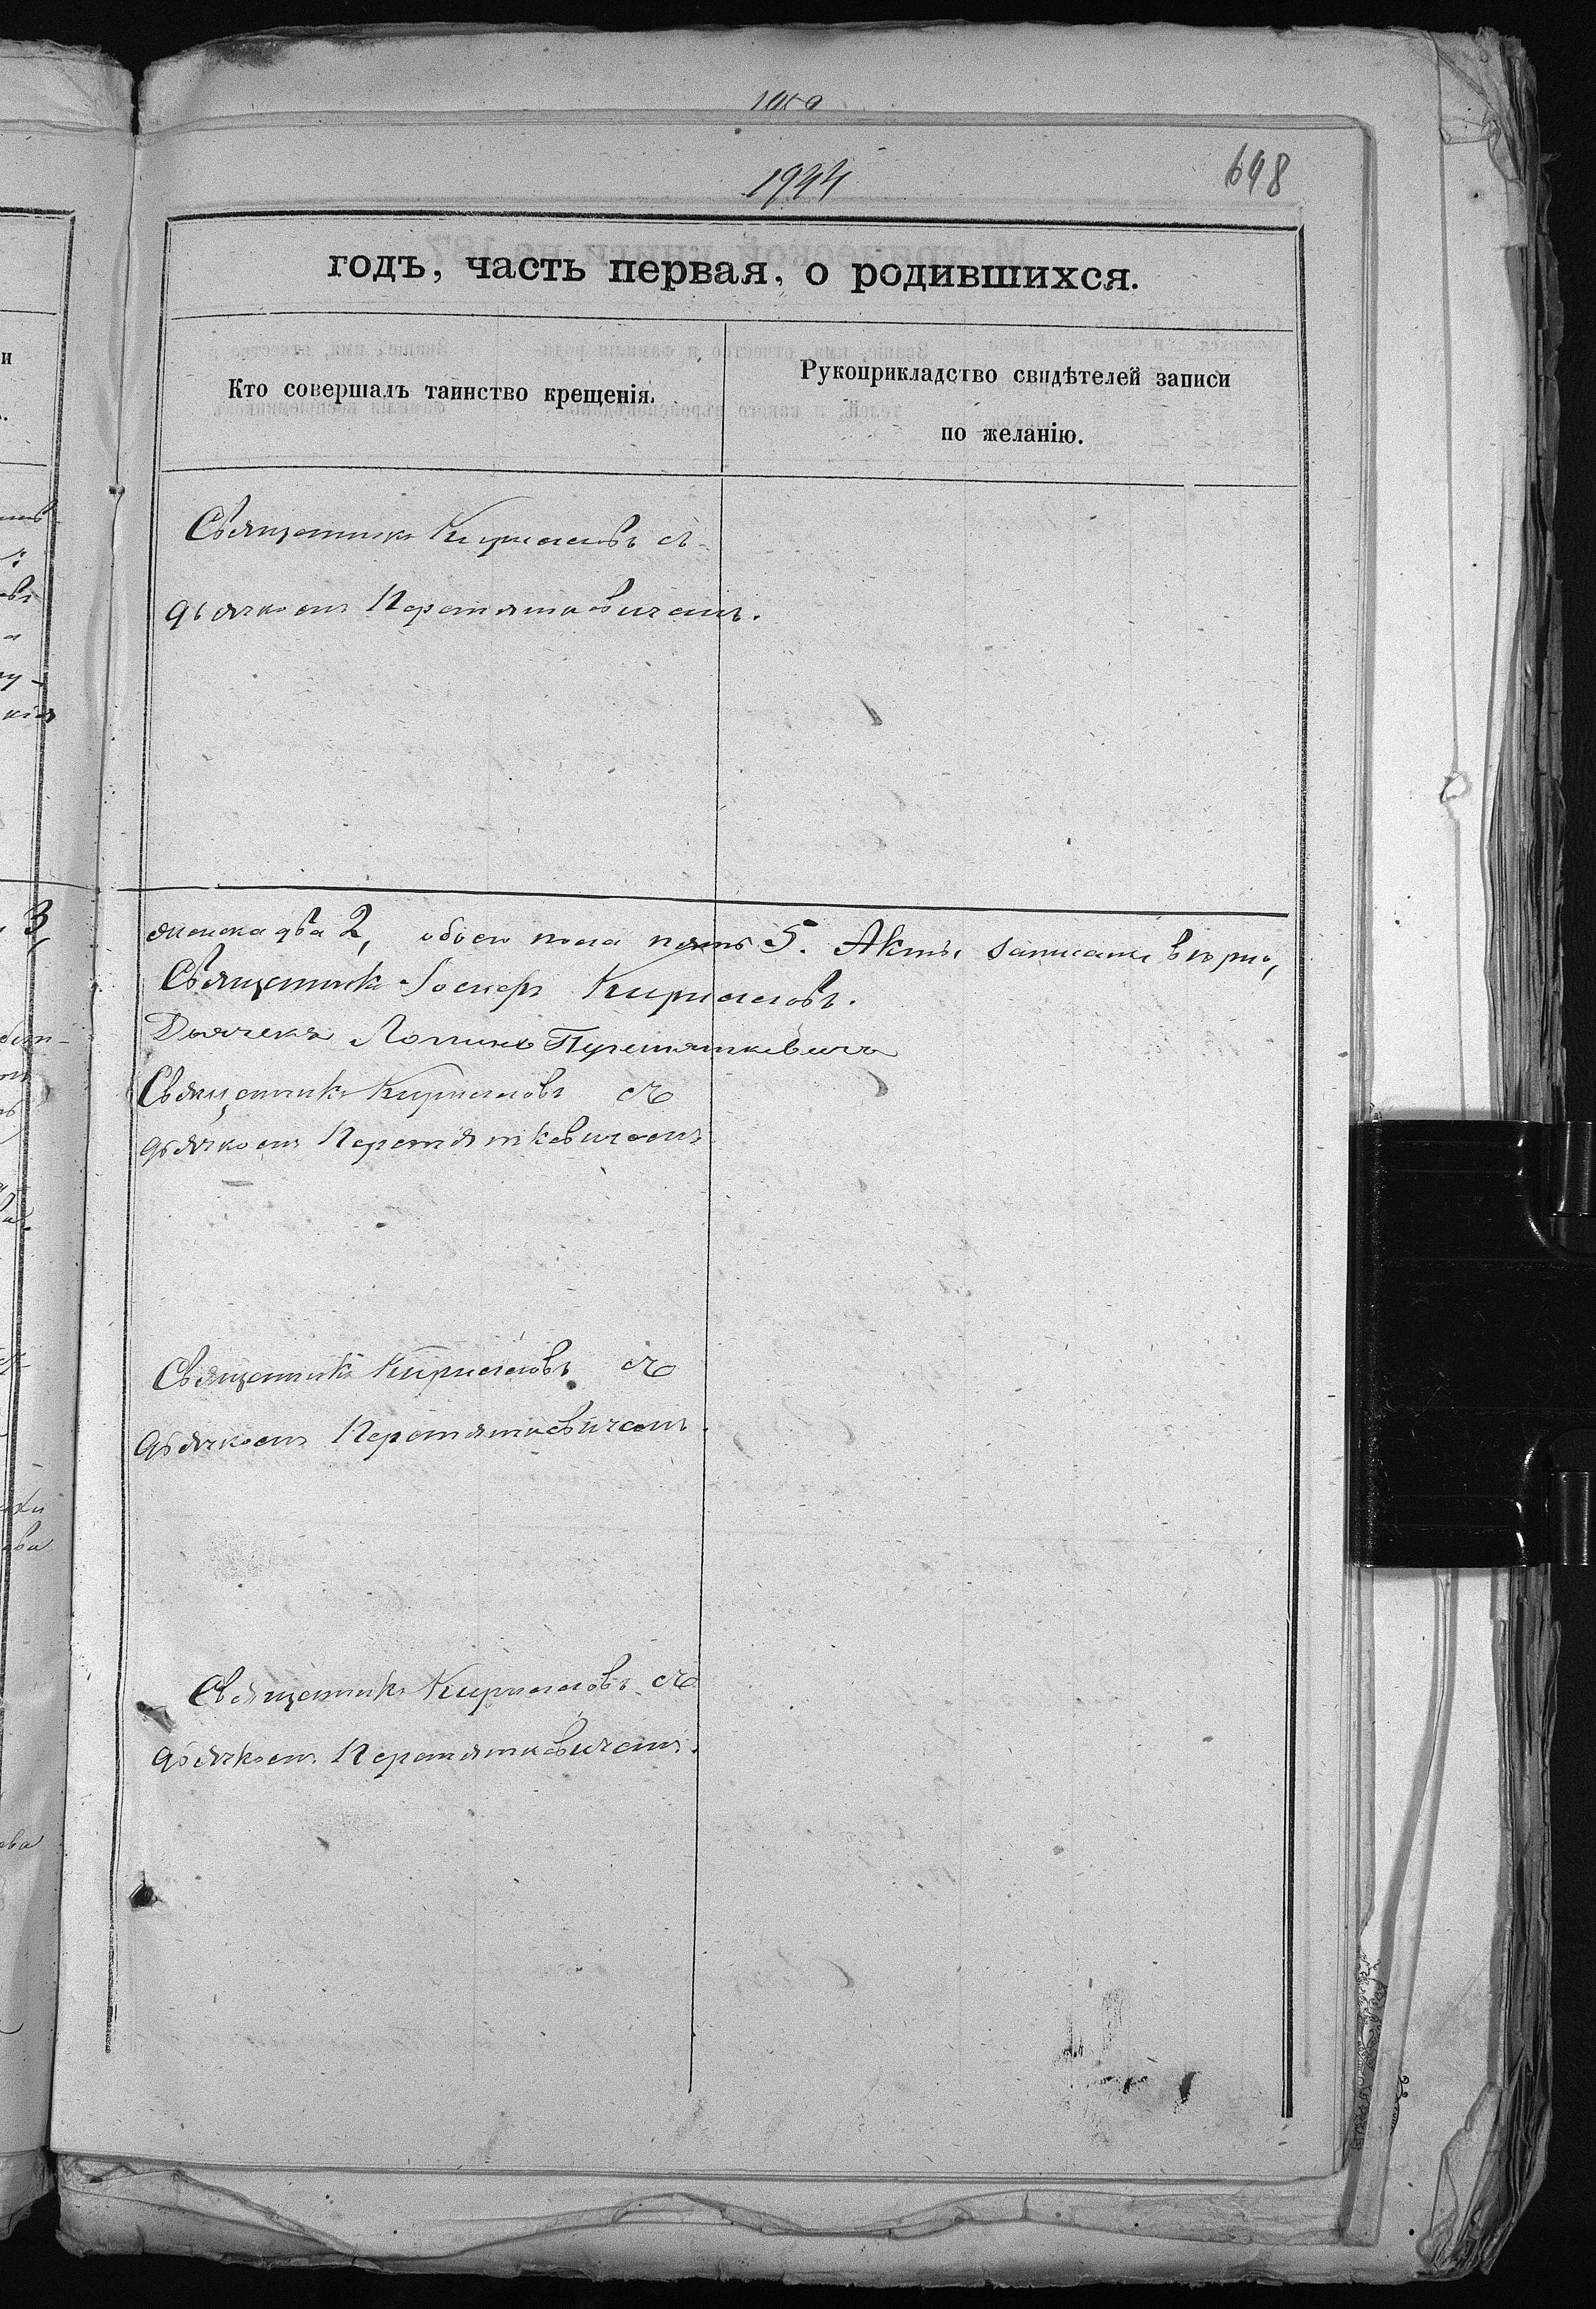 1944
698
годъ, часть первая, о родившихся.
Кто совершалъ таинство крещенія.
Рукоприкладство свидѣтелей записи
по желанію.
Священникъ Кирилловъ съ
дьячкомъ Перетятковичемъ.
женска два 2, обоего пола пять 5. Акты записаны вѣрно,
Священникъ Іосифъ Кирилловъ.
Дьячекъ Перетятковичъ
Священникъ Кирилловъ съ
дьячкомъ Перетятковичемъ
Священникъ Кирилловъ съ
дьячкомъ Перетятковичемъ.
Священникъ Кирилловъ съ
дьячкомъ Перетятковичемъ.